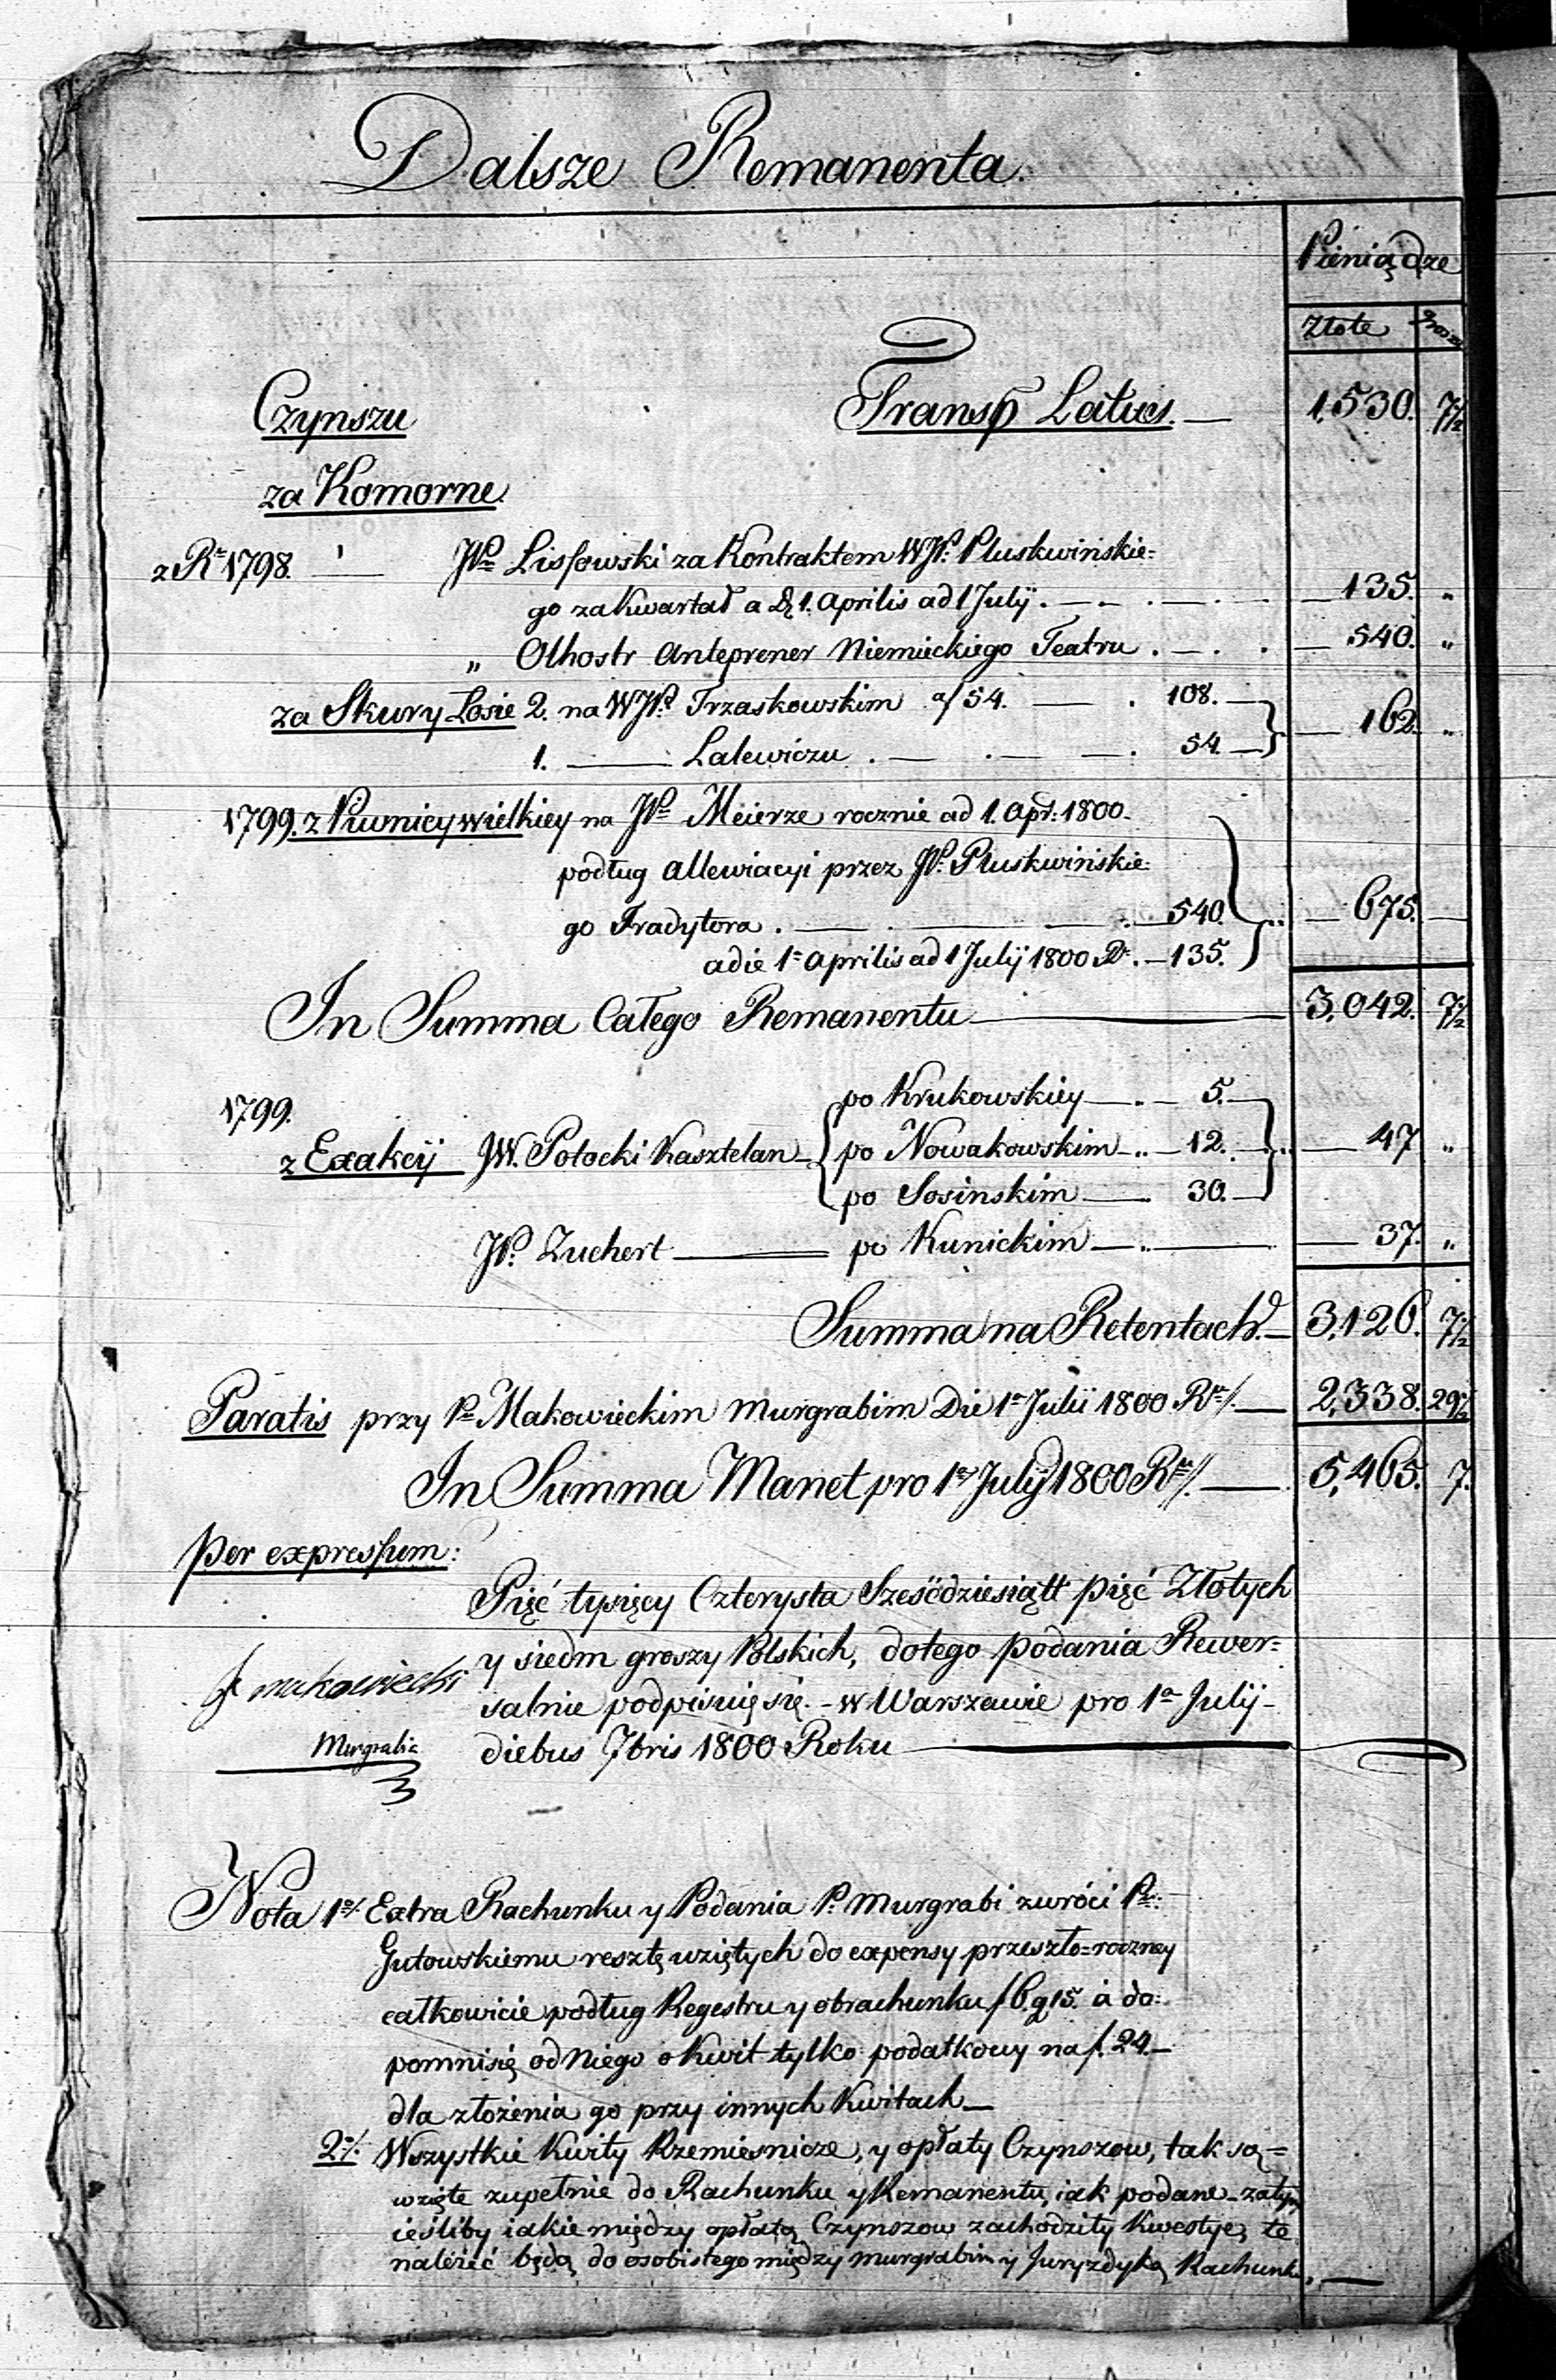 Dalsze Remanenta.
Pieniądze
Złote Groszy
Czynszu Transp Latus. — 1,530. 7½
za Komorne.
z Rk 1798. — JPn Lissowski za Kontraktem WJP. Pluskwińskie=
go za Kwartał a D 1. Aprilis ad 1 July. — 135. "
" Olhostr Anteprener Niemieckiego Teatru . — . — 540. "
za Skury Łosie 2. na WJP. Trzaskowskim a/ 54. — . 108. — 162. "
1. — Lalewiczu . — . — . 54. —
1799. z Piwnicy wielkiey na JPn Meierze rocznie ad 1. Apr: 1800.
podług allewiacyi przez JP. Pluskwińskie=
go Tradytora . — . — 540. — 675. —
a die 1a Aprilis ad 1 July 1800 R. — 135.
In Summa Całego Remanentu — 3,042. 7½
1799. po Krukowskiey — . — 5. —
z Exakcij JW. Potocki Kasztelan — po Nowakowskim — . — 12. — 47 "
po Sosinskim — 30. —
JP. Zuchert — po Kunickim — . — 37. "
Summa na Retentach. — 3,126. 7½
Paratis przy Pn Makowieckim Murgrabim Die 1a Julii 1800 Rku/. — 2,338. 29½
In Summa Manet pro 1a July 1800 Rku/. — 5,465. 7.
Per expressum:
Pięć tysięcy Czterysta Sześćdziesiątt pięć Złotych
y siedm groszy Polskich, do tego podania Rewer=
J Makowiecki salnie podpisuię się. – w Warszawie pro 1a Julij –
Murgrabia diebus 7bris 1800 Roku —
Nota 1o/. Extra Rachunku y Podania P. Murgrabi zwróci Pn:
Gutowskiemu resztę wziętych do expensy przeszło=roczney
całkowicie podług Regestru y obrachunku f 6. g 15. à do=
pomni się od Niego o Kwit tylko podatkowy na f. 24. —
dla złożenia go przy innych Kwitach —
2o/. Wszystkie Kwity Rzemieśnicze, y opłaty Czynszow, tak są =
wzięte zupełnie do Rachunku y Remanentu, iak podane – zatym
ieśliby iakie między opłatą Czynszow zachodziły Kwestye, te
należeć będą do osobistego między Murgrabim y Juryzdyką Rachunku. —